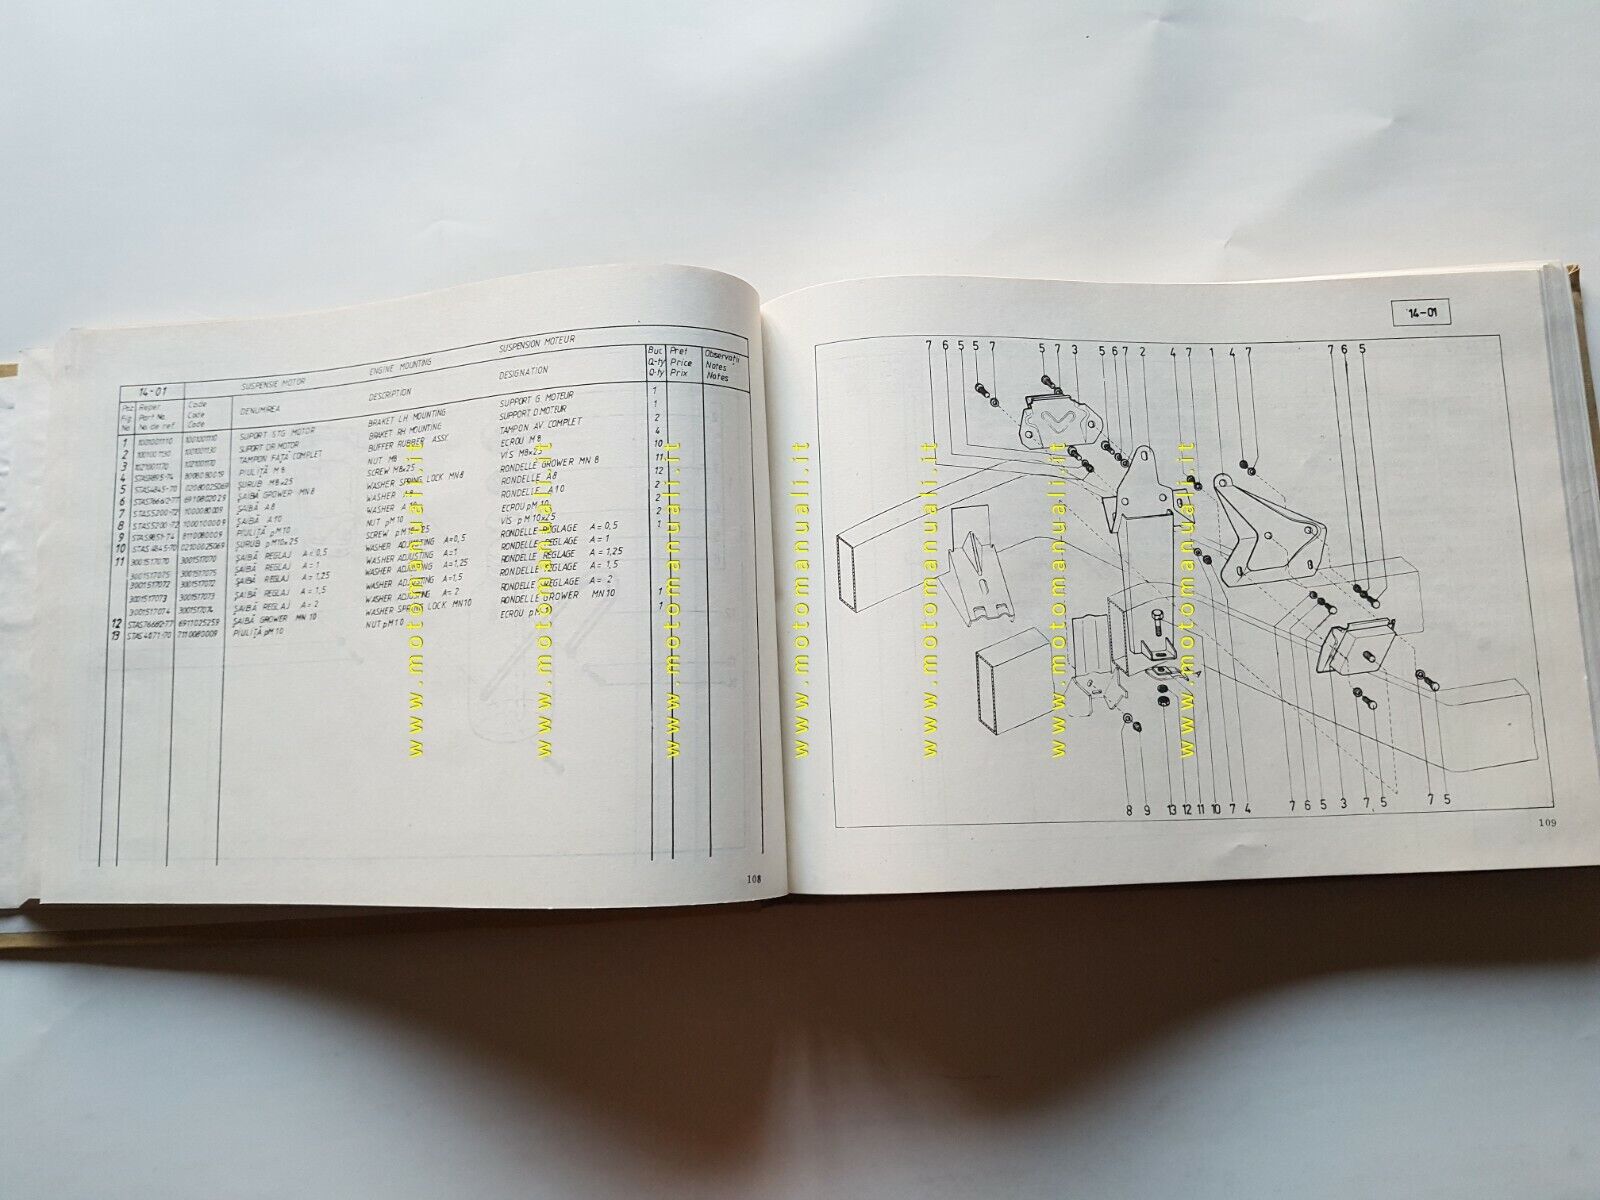 14-01 SUSPENSIE MOTOR ENGINE MOUNTING SUSPENSION MOTEUR Buc Pret Observatii
Poz Reper Code DENUMIREA DESCRIPTION DESIGNATION Q-ty Price Notes
Fig Part No. Code Q-ty Prix Notes
No No de ref Code
1 1001001110 1001001110 SUPORT STG MOTOR BRAKET LH MOUNTING SUPPORT G. MOTEUR 1
2 1001001130 1001001130 SUPORT DR MOTOR BRAKET RH MOUNTING SUPPORT D. MOTEUR 1
3 1021001170 1021001170 TAMPON FAȚĂ COMPLET BUFFER RUBBER ASSY. TAMPON AV. COMPLET 2
4 PIULIȚĂ M8 NUT M8 ECROU M8 4
5 STAS4845-70 ȘURUB M8x25 SCREW M8x25 VIS M8x25 10
6 STAS7666/2-77 ȘAIBĂ GROWER MN8 WASHER SPRING LOCK MN8 RONDELLE GROWER MN 8 11
7 STAS5200-72 ȘAIBĂ A8 WASHER A8 RONDELLE A8 12
8 STAS5200-72 ȘAIBĂ A10 WASHER A10 RONDELLE A10 2
9 PIULIȚĂ pM10 NUT pM10 ECROU pM10 2
10 STAS4845-70 ȘURUB pM10x25 SCREW pM10x25 VIS pM10x25 2
11 3001517070 3001517070 ȘAIBĂ REGLAJ A=0,5 WASHER ADJUSTING A=0,5 RONDELLE REGLAGE A=0,5 1
3001517075 3001517075 ȘAIBĂ REGLAJ A=1 WASHER ADJUSTING A=1 RONDELLE REGLAGE A=1
3001517072 3001517072 ȘAIBĂ REGLAJ A=1,25 WASHER ADJUSTING A=1,25 RONDELLE REGLAGE A=1,25
3001517073 3001517073 ȘAIBĂ REGLAJ A=1,5 WASHER ADJUSTING A=1,5 RONDELLE REGLAGE A=1,5
3001517074 3001517074 ȘAIBĂ REGLAJ A=2 WASHER ADJUSTING A=2 RONDELLE REGLAGE A=2
12 6911025259 ȘAIBĂ GROWER MN10 WASHER SPRING LOCK MN10 RONDELLE GROWER MN10 1
13 STAS4071-70 7110080009 PIULIȚĂ pM10 NUT pM10 ECROU pM10 1
108
14-01
7 6 5 5 7 5 7 3 5 6 7 2 4 7 1 4 7 7 6 5
8 9 13 12 11 10 7 4 7 6 5 3 7 5 7 5
109
www.motomanuali.it
www.motomanuali.it
www.motomanuali.it
www.motomanuali.it
www.motomanuali.it
www.motomanuali.it
www.motomanuali.it